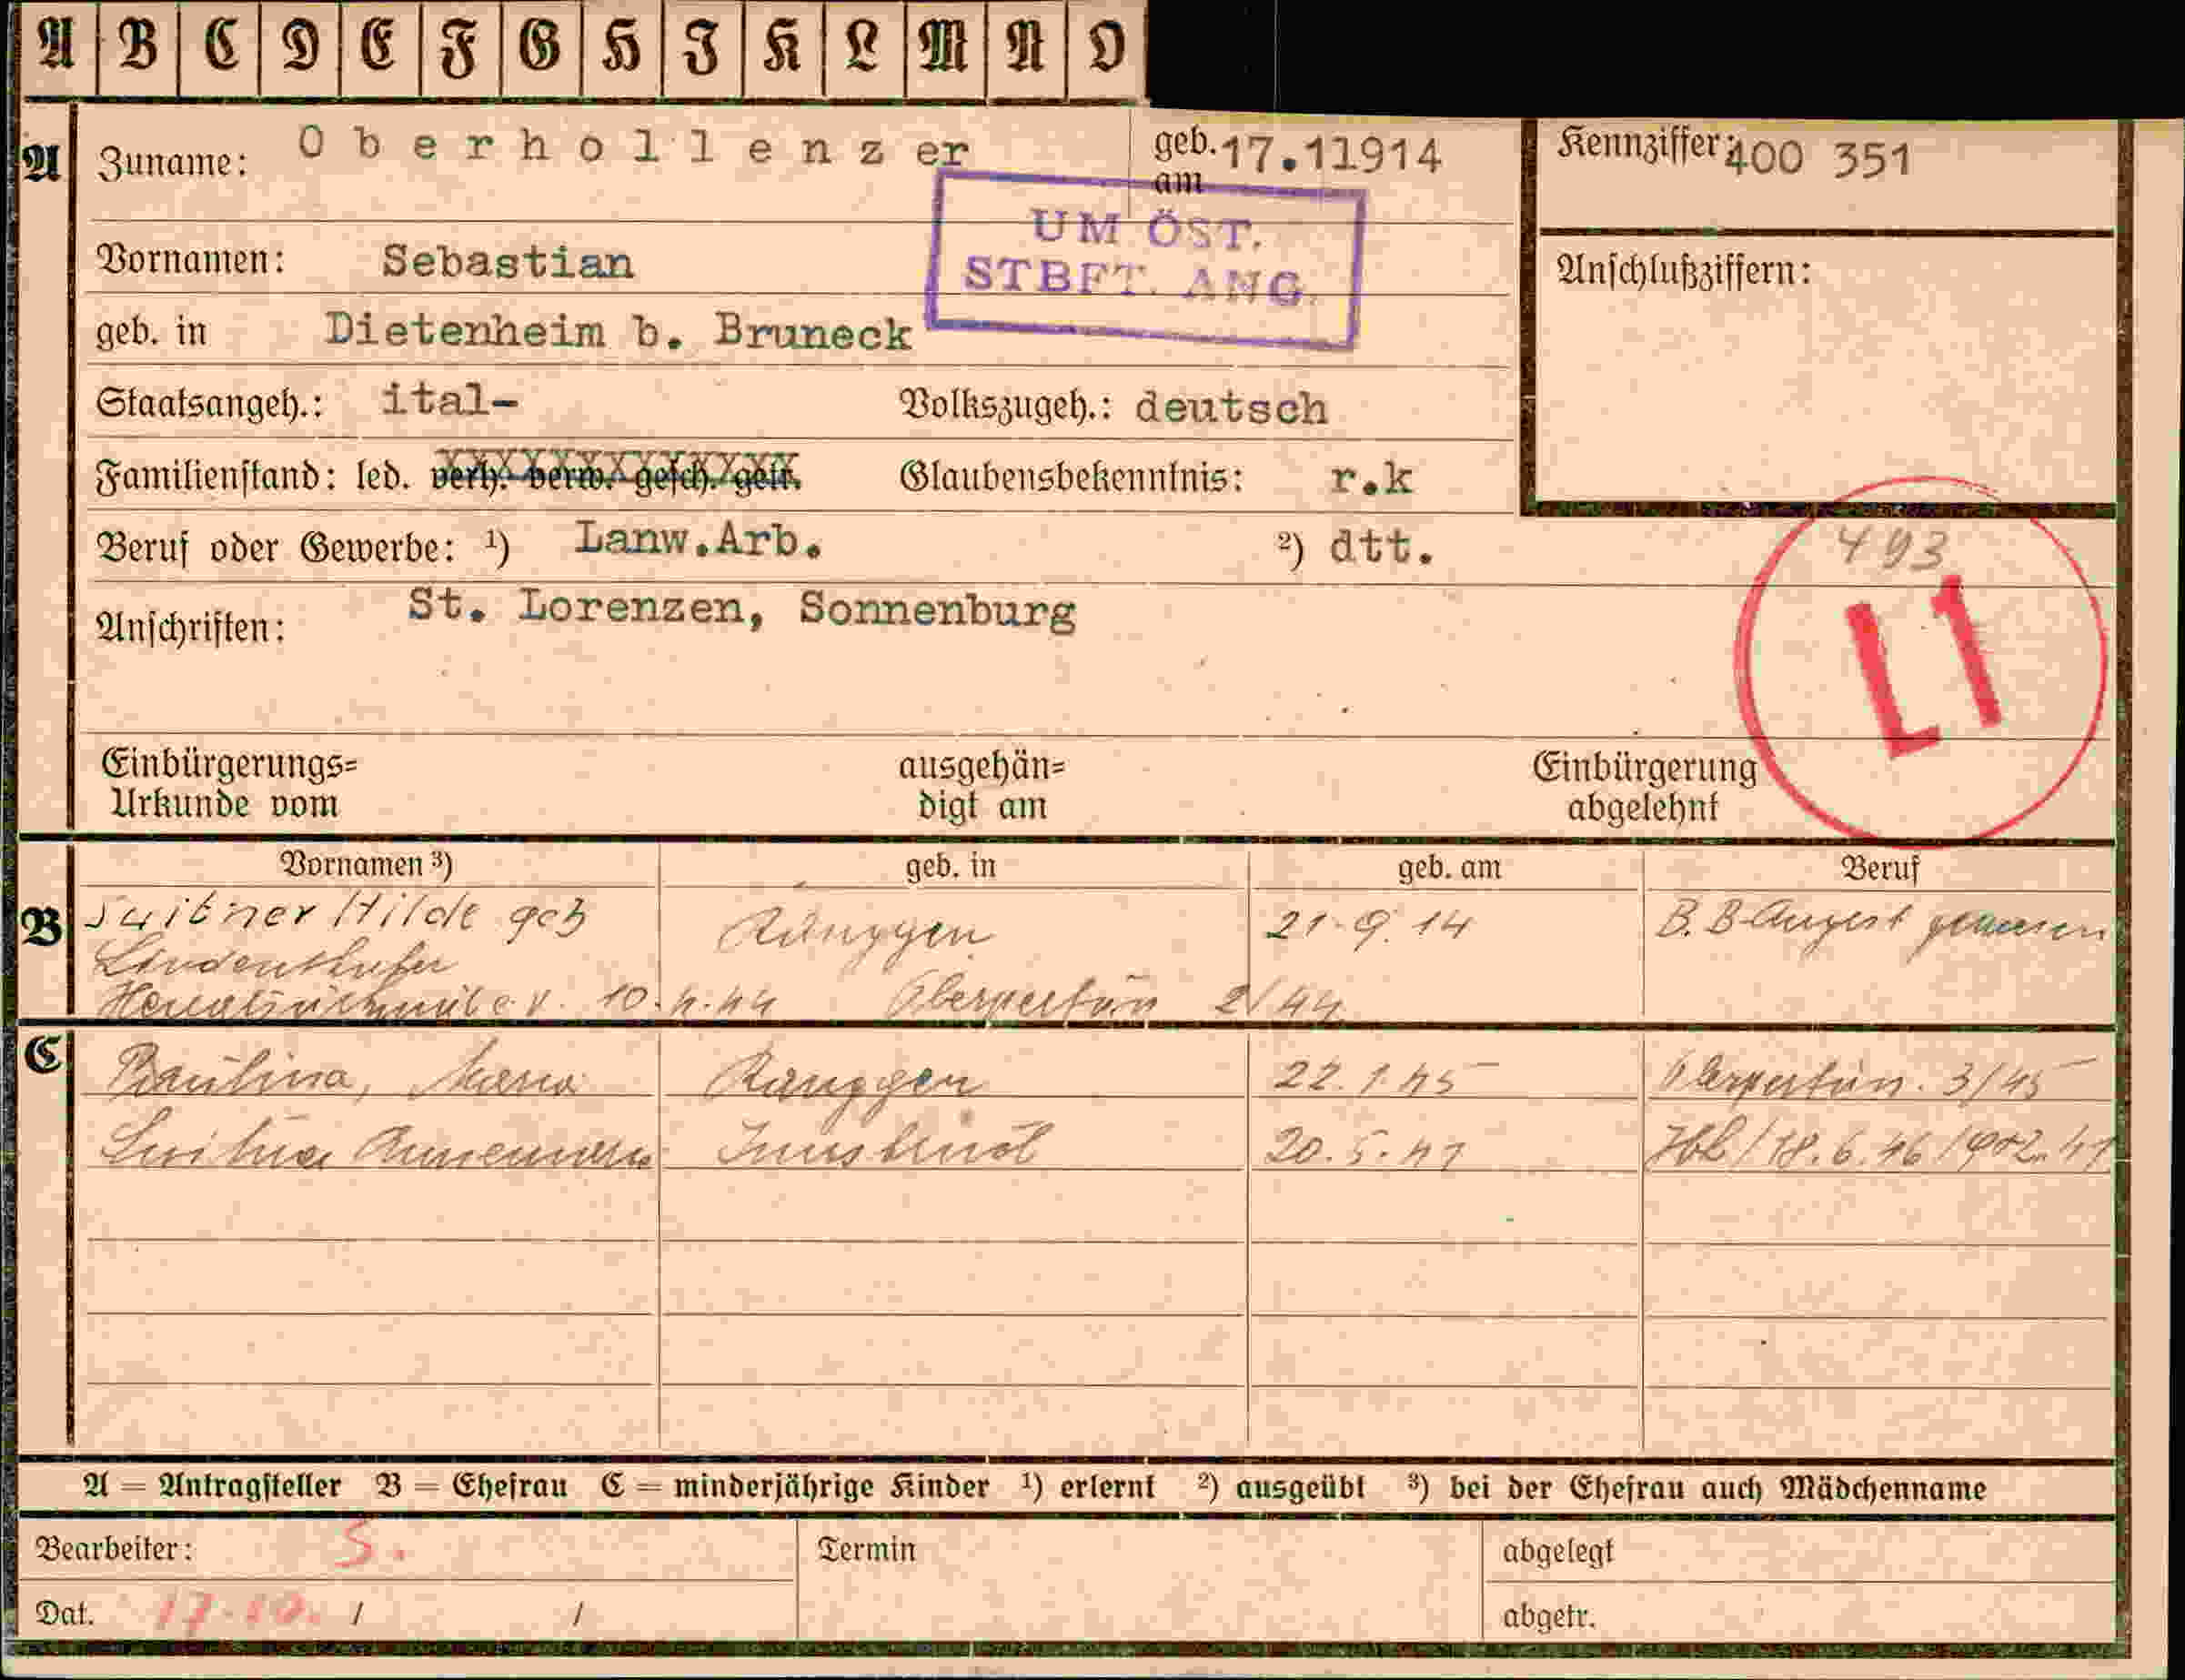 A B C D E F G H I K L M N O
A Zuname: Oberhollenzer geb. am 17.11914 Kennziffer: 400 351
UM ÖST.
STBFT. ANG.
Vornamen: Sebastian
Anschlußziffern:
geb. in Dietenheim b. Bruneck
Staatsangeh.: ital- Volkszugeh.: deutsch
Familienstand: led. verh. verw. gesch. getr. Glaubensbekenntnis: r.k
Beruf oder Gewerbe: ¹) Lanw.Arb. ²) dtt.
493
L1
Anschriften: St. Lorenzen, Sonnenburg
Einbürgerungs= ausgehän= Einbürgerung
Urkunde vom digt am abgelehnt
Vornamen ³) geb. in geb. am Beruf
B Suitner Hilde geb Ranggen 21.9.14 B.B.
10.4.44 Oberperfuss 2/44
C Paulina, Maria Ranggen 22.1.45 Oberperfuss. 3/45
Innsbruck 20.5.41
A = Antragsteller B = Ehefrau C = minderjährige Kinder ¹) erlernt ²) ausgeübt ³) bei der Ehefrau auch Mädchenname
Bearbeiter: S. Termin abgelegt
Dat. 17.10. / / abgetr.